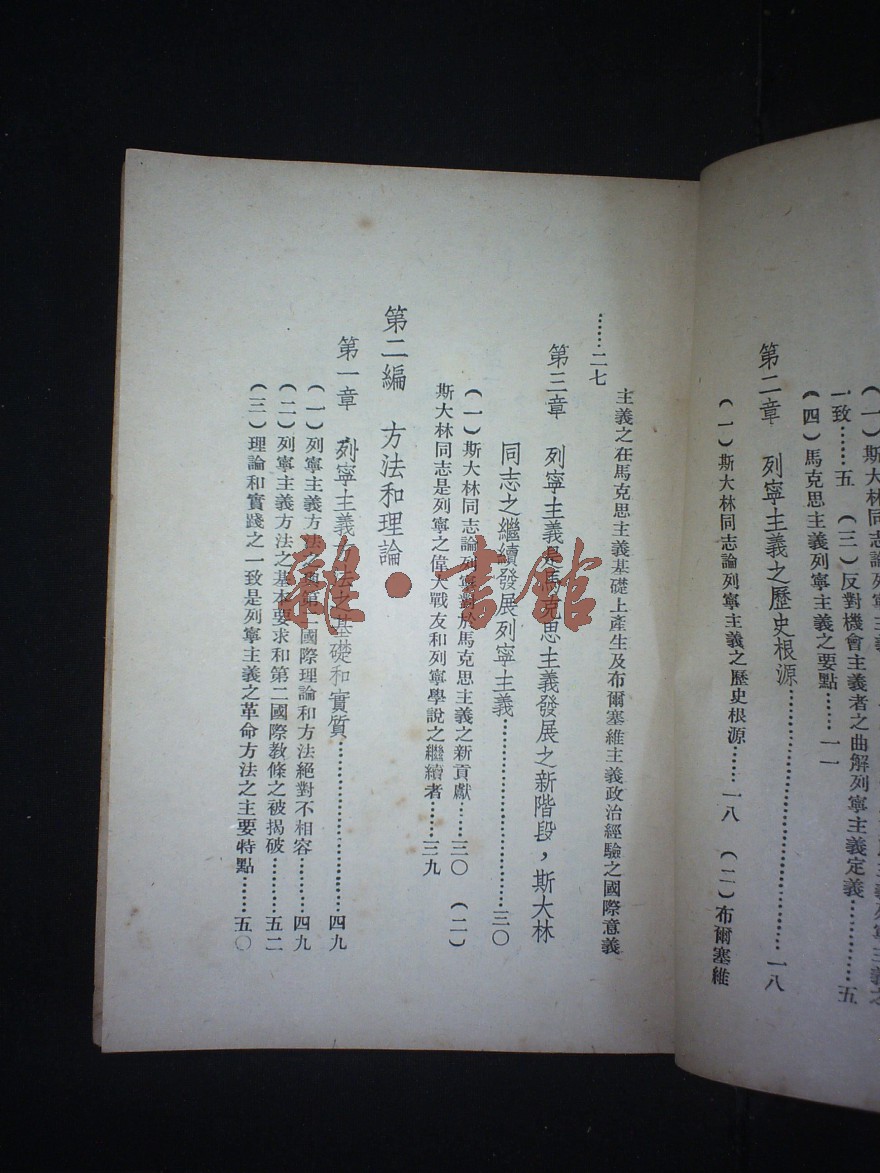 一致……五 (三)反對機會主義者之曲解列寧主義定義…………五
(四)馬克思主義列寧主義之要點……一一
第二章 列寧主義之歷史根源……………………………一八
(一)斯大林同志論列寧主義之歷史根源……一八 (二)布爾塞維
主義之在馬克思主義基礎上產生及布爾塞維主義政治經驗之國際意義
……二七
第三章 列寧主義是馬克思主義發展之新階段,斯大林
同志之繼續發展列寧主義……………………三〇
(一)斯大林同志論列寧對於馬克思主義之新貢獻……三〇 (二)
斯大林同志是列寧之偉大戰友和列寧學說之繼續者……三九
第二編 方法和理論
第一章 列寧主義方法之基礎和實質……………………四九
(一)列寧主義方法之與第二國際理論和方法絕對不相容……四九
(二)列寧主義方法之基本要求和第二國際教條之被揭破………五二
(三)理論和實踐之一致是列寧主義之革命方法之主要特點……五〇
雜·書館